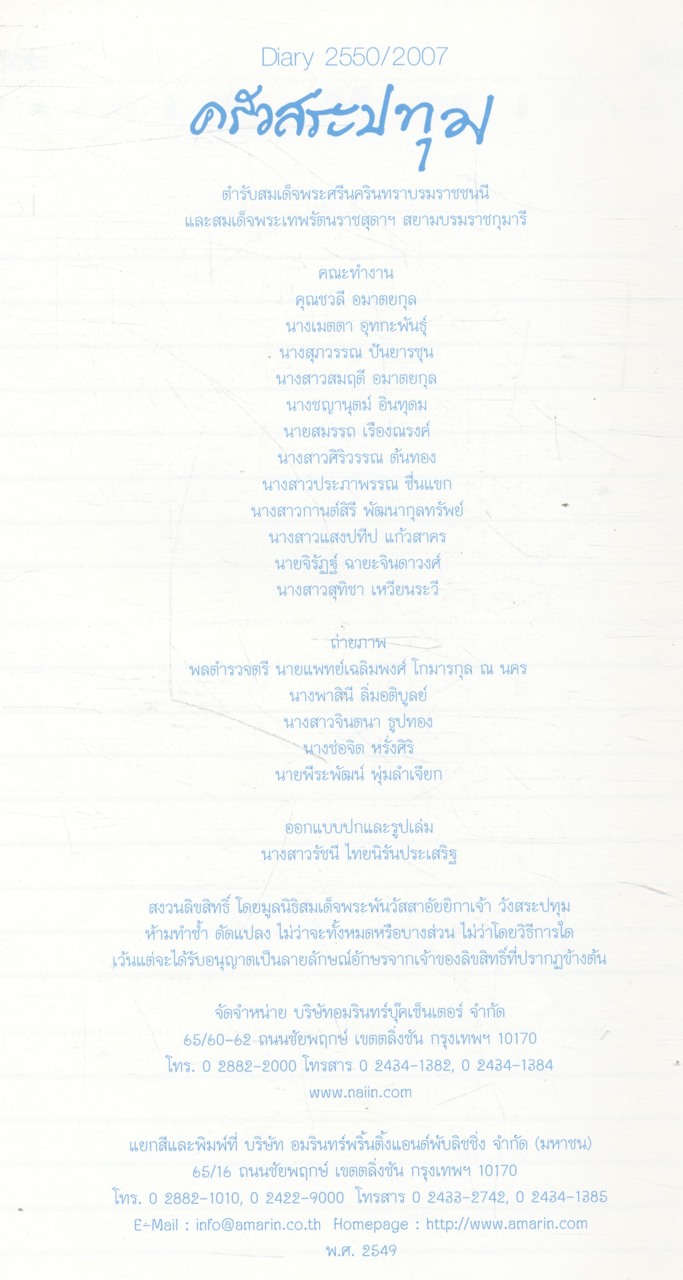 Diary 2550/2007
ครัวสระปทุม
ตำรับสมเด็จพระศรีนครินทราบรมราชชนนี
และสมเด็จพระเทพรัตนราชสุดาฯ สยามบรมราชกุมารี
คณะทำงาน
คุณชวลี อมาตยกุล
นางเมตตา อุทกะพันธุ์
นางสุภวรรณ ปันยารชุน
นางสาวสมฤดี อมาตยกุล
นางชญานุตม์ อินทุดม
นายสมรรถ เรืองณรงค์
นางสาวศิริวรรณ ต้นทอง
นางสาวประภาพรรณ ชื่นแขก
นางสาวกานต์สิรี พัฒนากุลทรัพย์
นางสาวแสงปทีป แก้วสาคร
นายจิรัฏฐ์ ฉายะจินดาวงศ์
นางสาวสุทิชา เหวียนระวี
ถ่ายภาพ
พลตำรวจตรี นายแพทย์เฉลิมพงศ์ โกมารกุล ณ นคร
นางพาสินี ลิ่มอติบูลย์
นางสาวจินตนา ธูปทอง
นางช่อจิต หรั่งศิริ
นายพีระพัฒน์ พุ่มลำเจียก
ออกแบบปกและรูปเล่ม
นางสาวรัชนี ไทยนิรันประเสริฐ
สงวนลิขสิทธิ์ โดยมูลนิธิสมเด็จพระพันวัสสาอัยยิกาเจ้า วังสระปทุม
ห้ามทำซ้ำ ดัดแปลง ไม่ว่าจะทั้งหมดหรือบางส่วน ไม่ว่าโดยวิธีการใด
เว้นแต่จะได้รับอนุญาตเป็นลายลักษณ์อักษรจากเจ้าของลิขสิทธิ์ที่ปรากฏข้างต้น
จัดจำหน่าย บริษัทอมรินทร์บุ๊คเซ็นเตอร์ จำกัด
65/60-62 ถนนชัยพฤกษ์ เขตตลิ่งชัน กรุงเทพฯ 10170
โทร. 0 2882-2000 โทรสาร 0 2434-1382, 0 2434-1384
www.naiin.com
แยกสีและพิมพ์ที่ บริษัท อมรินทร์พริ้นติ้งแอนด์พับลิชชิ่ง จำกัด (มหาชน)
65/16 ถนนชัยพฤกษ์ เขตตลิ่งชัน กรุงเทพฯ 10170
โทร. 0 2882-1010, 0 2422-9000 โทรสาร 0 2433-2742, 0 2434-1385
E-Mail : info@amarin.co.th Homepage : http://www.amarin.com
พ.ศ. 2549